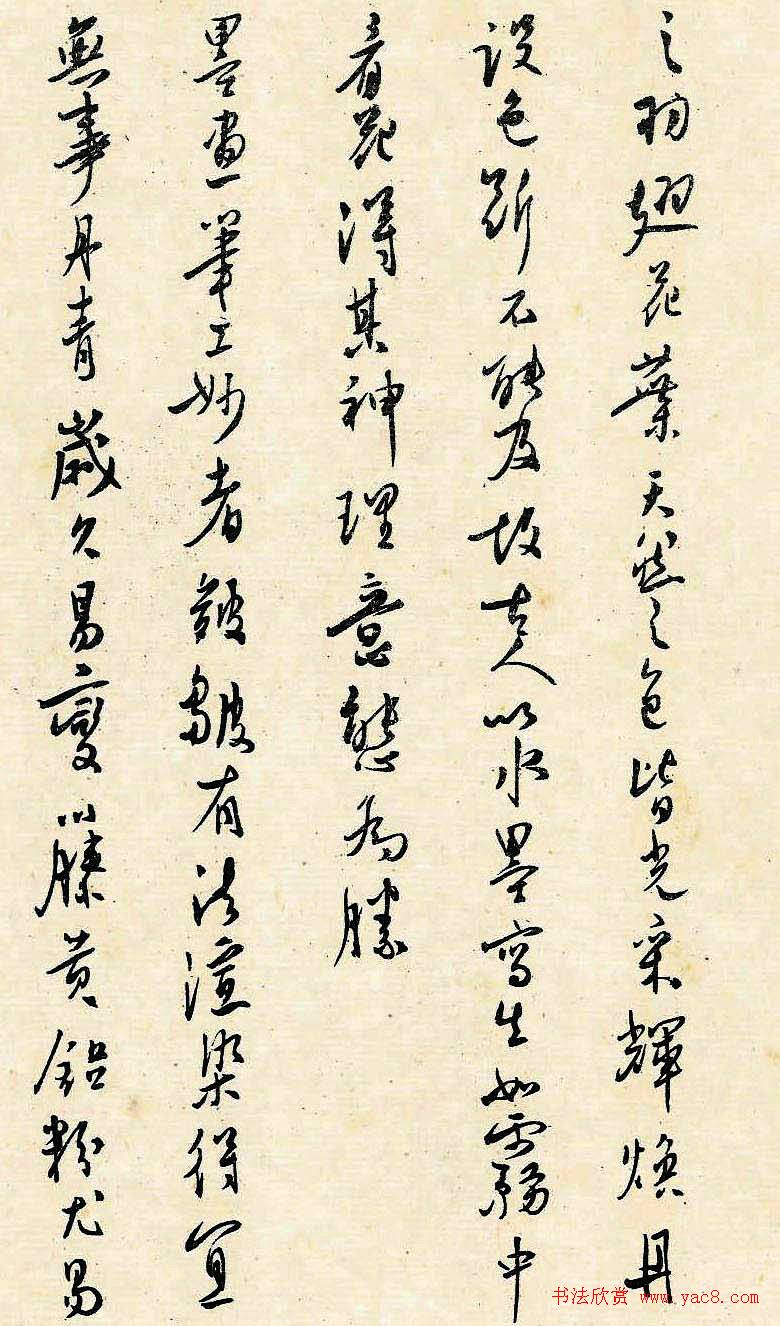 之羽翅花葉天然之色皆光采輝煥丹
設色斷不能及故古人以水墨寫生如霧中
看花得其神理意態為勝
墨畫筆工妙者皴皺有法渲染得宜
無事丹青歲久易變以藤黃鉛粉尤易
书法欣赏 www.yac8.com